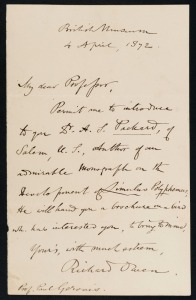 British Museum
4 April, 1872
My dear Professor,
Permit me to introduce
to you Dr. A. S. Packard, of
Salem, U. S., Author of an
admirable monograph on the
Development of Limulus Polyphemus.
He will hand you a brochure
wh. has interested to bring to mind,
Yours, with much esteem,
Richard Owen
Prof. Paul Gervais